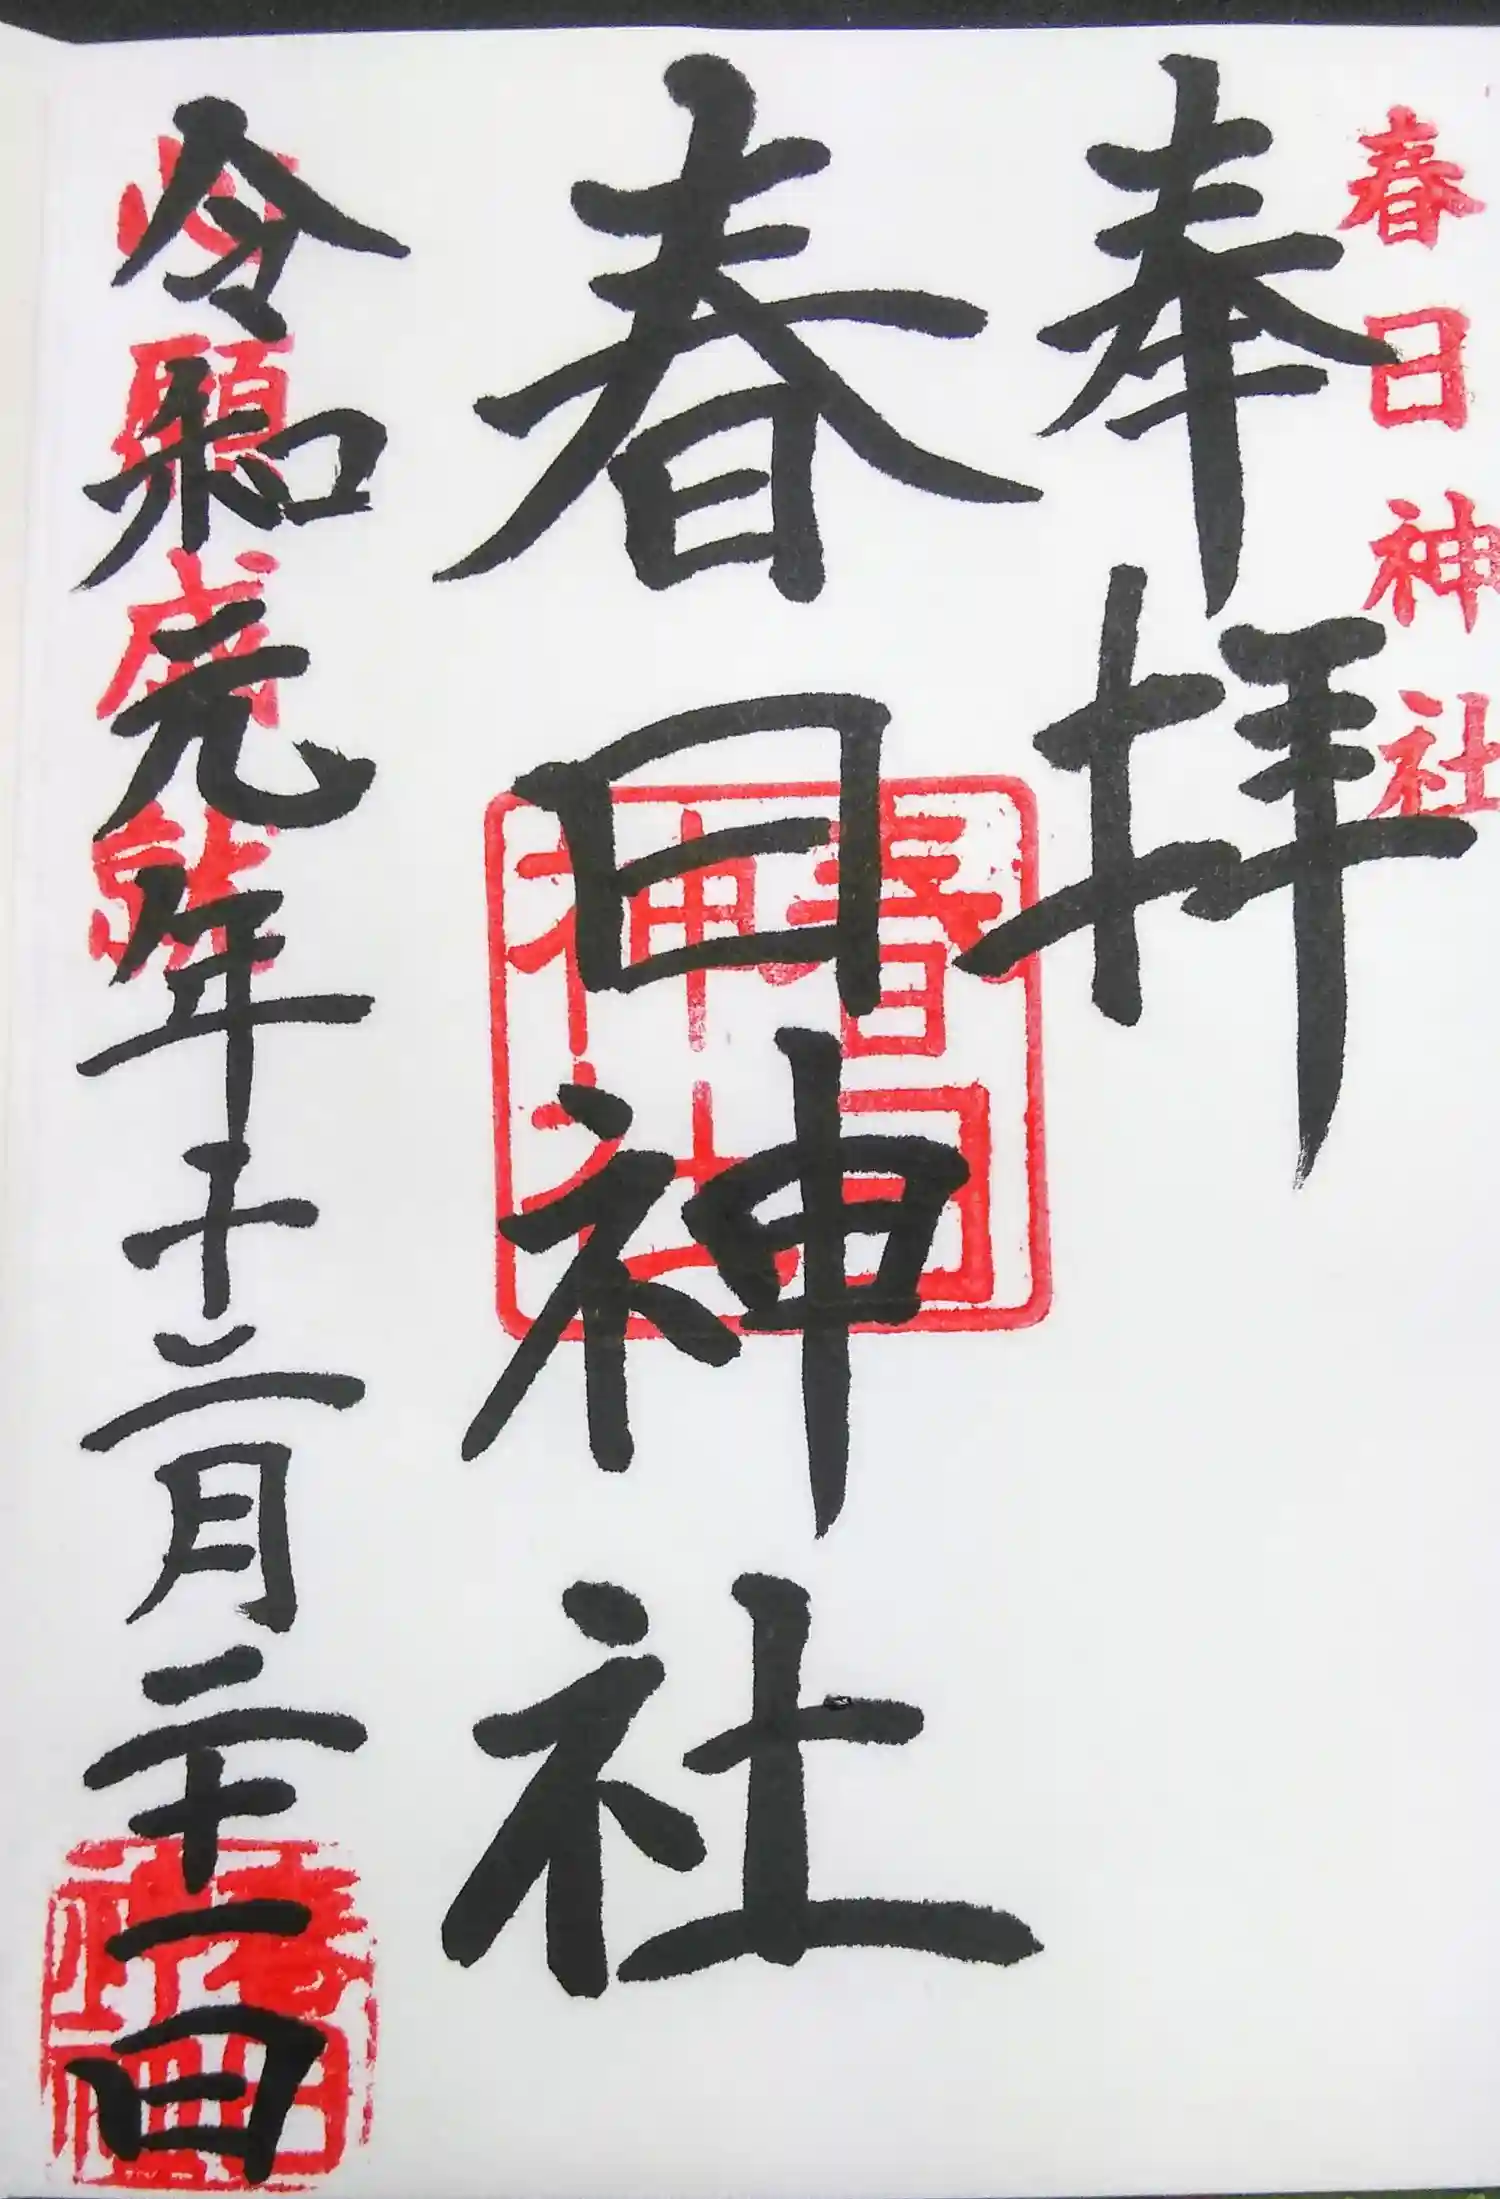 春日神社
奉拝
春日神社
春日神社
令和元年十二月二十一日
心願成就